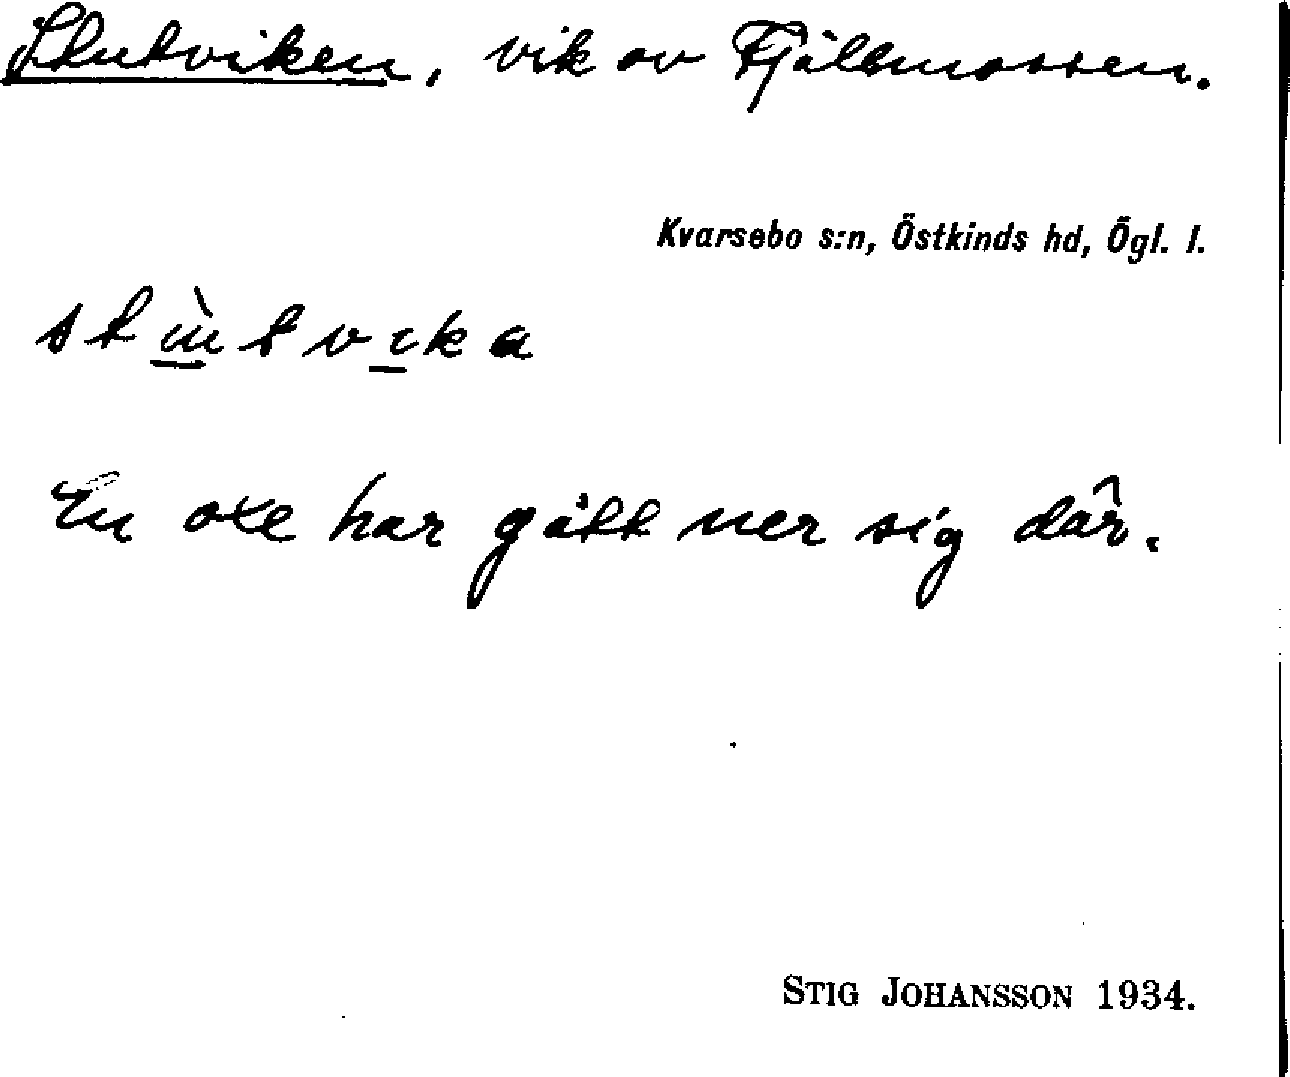 Stutviken, vik av Fjällmossen.
Kvarsebo s:n, Östkinds hd, Ögl. l.
En oxe har gått ner sig där.
STIG JOHANSSON 1934.